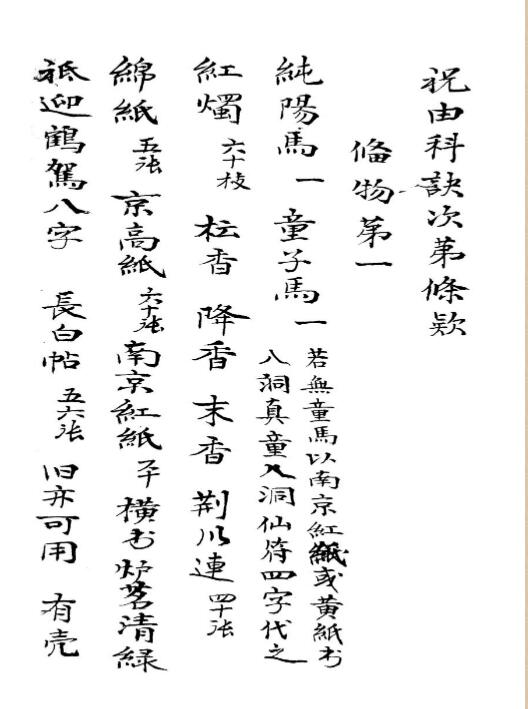 祝由科訣次第條款
俻物第一
純陽馬一 童子馬一 若無童馬以南京紅紙或黄紙书
八洞真童八洞仙符四字代之
紅燭 六十枝 柱香 降香 末香 荆川連 四十张
綿紙 五张 京高紙 六十张 南京紅紙 横书炉茗清緑
祗迎鶴駕八字 長白帖 五六张 旧亦可用 有壳